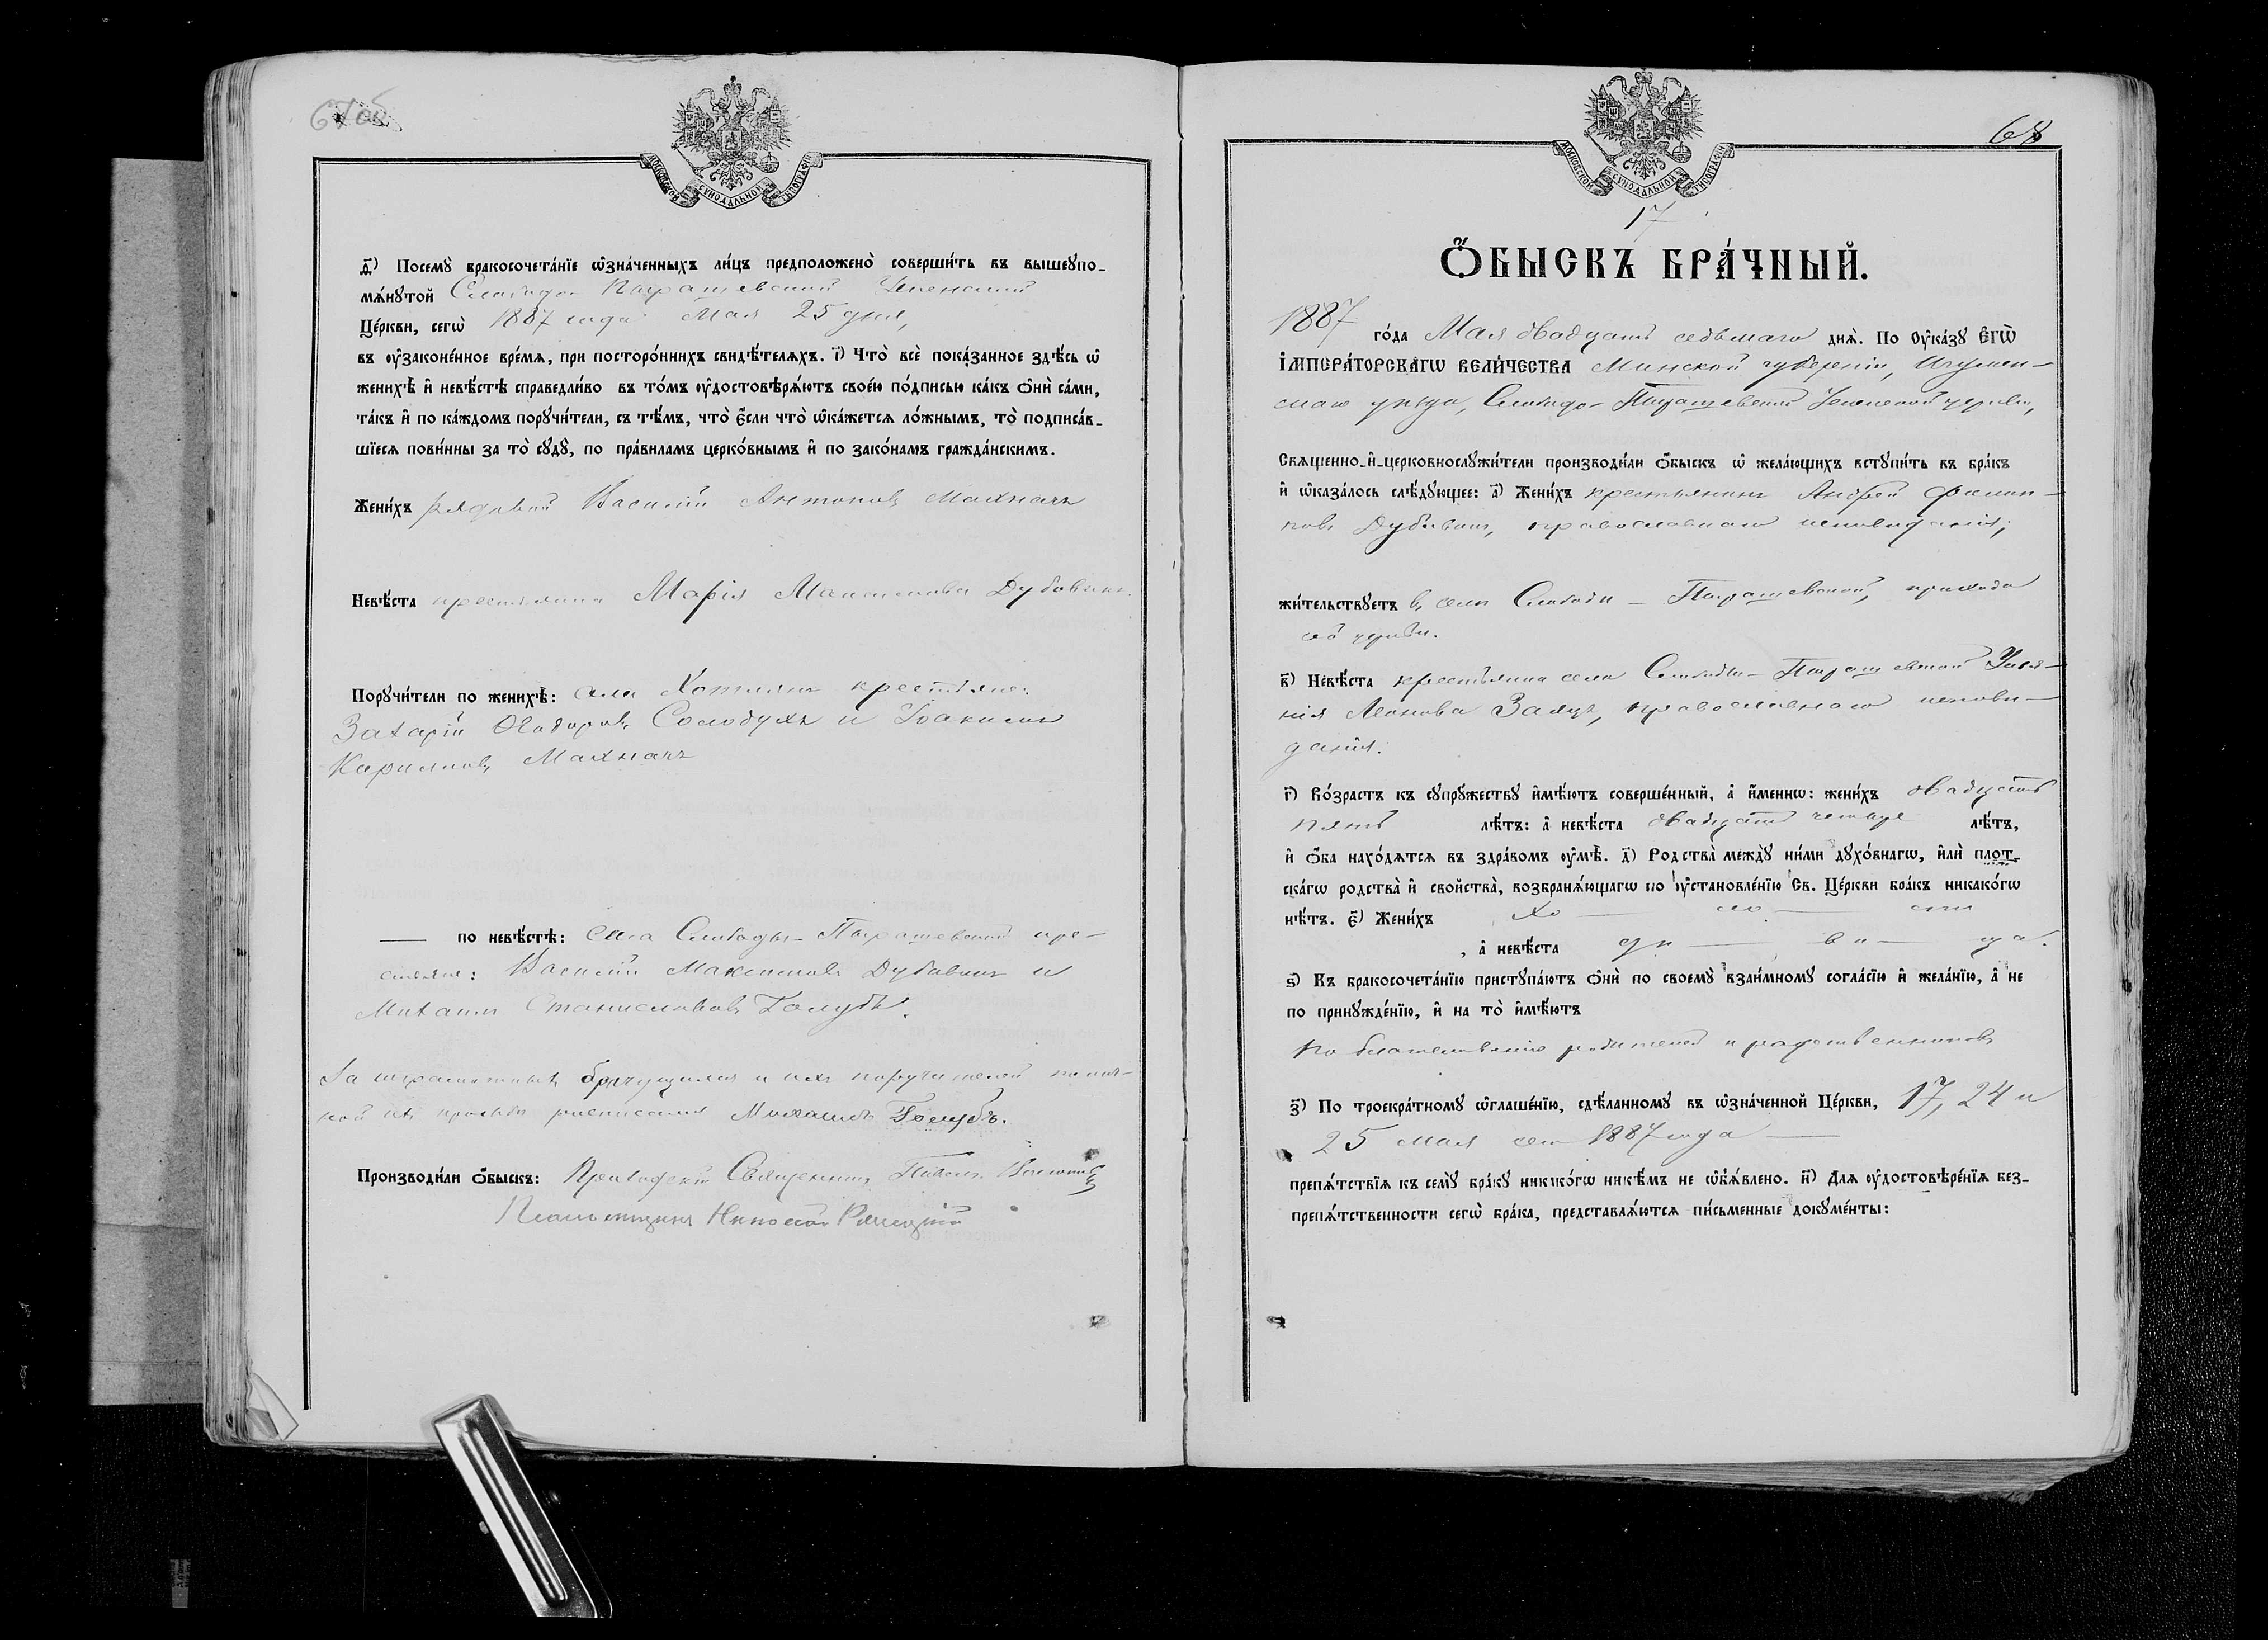 67об
МОСКОВСКОЙ СѴНОДАЛЬНОЙ ТИПОГРАФІИ
д҃) Посемꙋ̀ бракосочета́нїе ѡ҆зна́ченныхъ ли́цъ предположено̀ соверши́ть въ вышеꙋпо-
мѧ́нꙋтой Слободо-Пырашевской Успенской
Це́ркви, сегѡ̀ 1887 года Мая 25 дня,
въ ᲂу҆законе́нное вре́мѧ, при посторо́ннихъ свидѣ́телѧхъ. і҃) Что̀ всѐ пока́занное здѣ́сь ѡ҆
женихѣ̀ и҆ невѣ́стѣ справедли́во въ то́мъ ᲂу҆достовѣрѧ́ютъ свое́ю по́дписью ка́къ ѻ҆нѝ са́ми,
та́къ и҆ по ка́ждомъ порꙋчи́тели, съ тѣ́мъ, что̀ є҆́сли что̀ ѡ҆ка́жетсѧ ло́жнымъ, то̀ подписа́в-
шїесѧ пови́нны за то̀ сꙋдꙋ̀, по пра́виламъ церко́внымъ и҆ по зако́намъ гражда́нскимъ.
Жени́хъ рядовой Василій Антоновъ Махначъ
Невѣ́ста крестьянка Марія Максимова Дубовикъ.
Порꙋчи́тели по женихѣ̀: села Хотлянъ крестьяне:
Захарій Ѳеодоровъ Солодухъ и Іоакимъ
Карниловъ Махначъ
— по невѣ́стѣ: села Слободы-Пырашевской кре-
стьяне: Василій Максимовъ Дубовикъ и
Михаилъ Станиславовъ Голубъ.
За неграмотныхъ брачущихся и ихъ поручителей по лич-
ной ихъ просьбѣ расписался Михаилъ Голубъ.
Производи́ли ѻ҆́быскъ: Приходскій Священникъ Павелъ
Псаломщикъ Николай
68
МОСКОВСКОЙ СѴНОДАЛЬНОЙ ТИПОГРАФІИ
17
Ѻ҆́БЫСКЪ БРА́ЧНЫЙ.
1887 го́да Мая двадцать седьмаго днѧ̀. По Оу҆ка́зꙋ Є҆ГѠ̀
І҆МПЕРА́ТОРСКАГѠ ВЕЛИ́ЧЕСТВА Минской губерніи, Игумен-
скаго уѣзда, Слободо-Пырашевской Успенской церкви,
Свѧще́нно-и҆-церковнослꙋжи́тели производи́ли ѻ҆́быскъ ѡ҆ жела́ющихъ встꙋпи́ть въ бра́къ
и҆ ѡ҆каза́лось слѣ́дꙋющее: а҃) Жени́хъ крестьянинъ Андрей Филип-
повъ Дубовикъ, православнаго исповѣданія;
жи́тельствꙋетъ въ селѣ Слободѣ-Пырашевской, прихода
сей церкви.
в҃) Невѣ́ста крестьянка села Слободы-Пырашевской Улья-
нія Леонова Заяцъ, православнаго исповѣ-
данія.
г҃) Во́зрастъ къ сꙋпрꙋ́жествꙋ и҆мѣ́ютъ соверше́нный, а҆ и҆́меннѡ: жени́хъ двадцать
пять лѣ́тъ: а҆ невѣ́ста двадцать четыре лѣ́тъ,
и҆ ѻ҆́ба нахо́дѧтсѧ въ здра́вомъ ᲂу҆мѣ̀. д҃) Родства̀ междꙋ̀ ни́ми дꙋхо́внагѡ, и҆лѝ плот-
ска́гѡ родства̀ и҆ свойства̀, возбранѧ́ющагѡ по ᲂу҆становле́нїю Св. Це́ркви бра́къ никако́гѡ
нѣ́тъ. є҃) Жени́хъ Хо — ло — стъ
, а҆ невѣ́ста дѣ — ви — ца.
ѕ҃) Къ бракосочета́нїю пристꙋпа́ютъ ѻ҆нѝ по своемꙋ̀ взаи́мномꙋ согла́сїю и҆ жела́нїю, а҆ не
по принꙋжде́нїю, и҆ на то̀ и҆мѣ́ютъ
по благословенію родителей и родственниковъ
з҃) По троекра́тномꙋ ѡ҆глаше́нїю, сдѣ́ланномꙋ въ ѡ҆зна́ченной Це́ркви, 17, 24 и
25 мая сего 1887 года —
препѧ́тствїѧ къ семꙋ̀ бра́кꙋ никако́гѡ никѣ́мъ не ѡ҆б̾ѧ́влено. и҃) Длѧ ᲂу҆достовѣре́нїѧ без-
препѧ́тственности сегѡ̀ бра́ка, представлѧ́ютсѧ пи́сьменные докꙋме́нты: